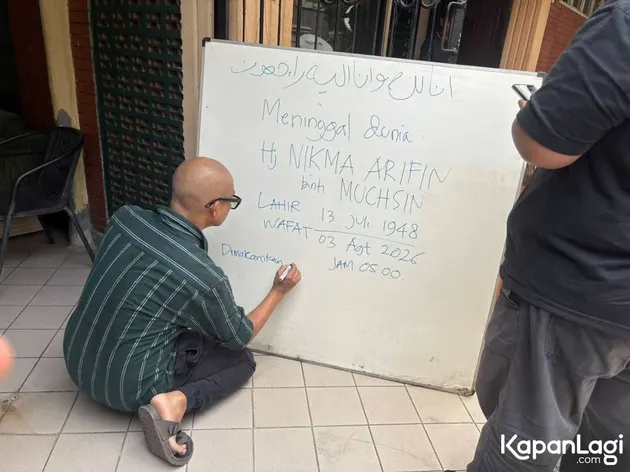 انا لله وانا اليه راجعون
Meninggal dunia.
Hj NIKMA ARIFIN
binti MUCHSIN
LAHIR 13 Juli 1948
WAFAT 03 Agt 2026
JAM 05.00.
Dimakamkan
KapanLagi
.com